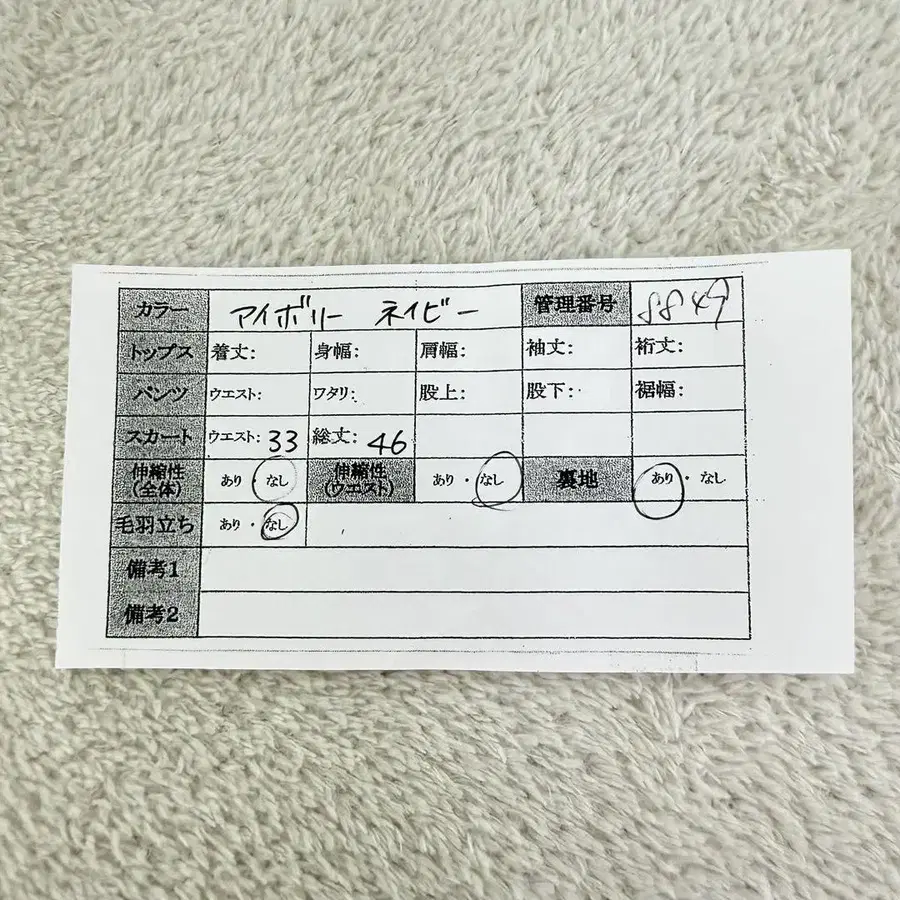 カラー アイボリー ネイビー 管理番号 8849
トップス 着丈: 身幅: 肩幅: 袖丈: 裄丈:
パンツ ウエスト: ワタリ: 股上: 股下: 裾幅:
スカート ウエスト: 33 総丈: 46
伸縮性(全体) あり・なし 伸縮性(ウエスト) あり・なし 裏地 あり・なし
毛羽立ち あり・なし
備考1
備考2